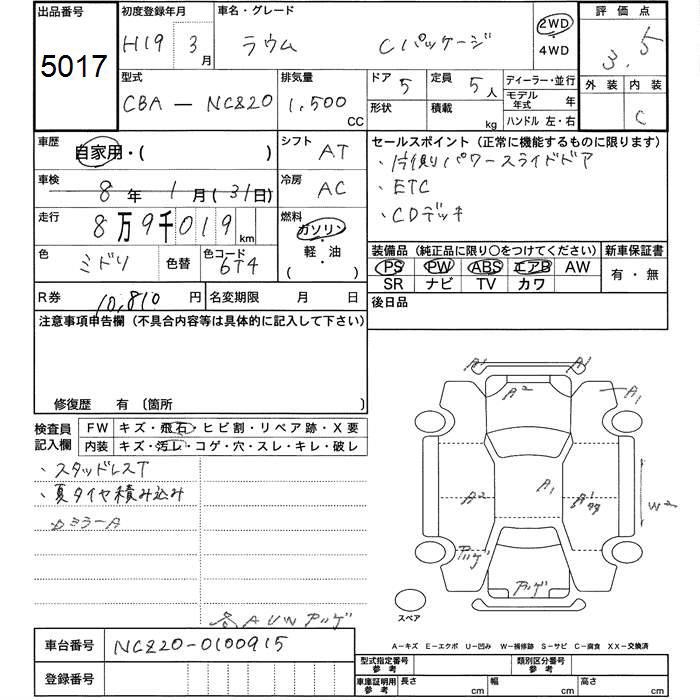 出品番号
5017
初度登録年月
H19 3月
車名・グレード
ラウム Cパッケージ
2WD
4WD
評価点
3.5
外装 内装
C
型式
CBA-NCZ20
排気量
1,500 CC
ドア 5
形状
定員 5人
積載 kg
ディーラー・並行
モデル年式 年
ハンドル 左・右
車歴
自家用・( )
シフト AT
車検
8年 1月(31日)
冷房 AC
走行
8万9千019km
燃料
ガソリン
・
軽・油
( )
色
ミドリ
色替
色コード
6T4
R券 10,810円
名変期限 月 日
セールスポイント(正常に機能するものに限ります)
・片側パワースライドドア
・ETC
・CDデッキ
装備品(純正品に限り○をつけてください)
PS PW ABS エアB AW
SR ナビ TV カワ
新車保証書
有・無
後日品
注意事項申告欄(不具合内容等は具体的に記入して下さい)
修復歴 有 〔箇所 〕
検査員記入欄
FW キズ・飛石・ヒビ割・リペア跡・X要
内装 キズ・汚レ・コゲ・穴・スレ・キレ・破レ
・スタッドレスT
・夏タイヤ積み込み
ミラーA
各AUWアゲ
A1
A1
A2
A1
A2
A1
A1
W2
アゲ
アゲ
スペア
A-キズ E-エクボ U-凹み W-補修跡 S-サビ C-腐食 XX-交換済
車台番号 NCZ20-0100915
登録番号
型式指定番号参考
類別区分番号参考
車庫証明用参考
長さ cm
幅 cm
高さ cm